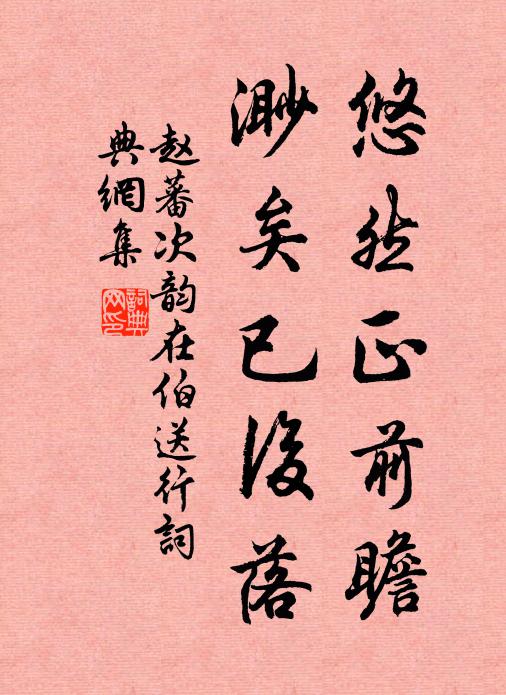 悠然正前瞻
渺矣已後落
赵蕃次韵在伯送行詞
典網集
詞典网印